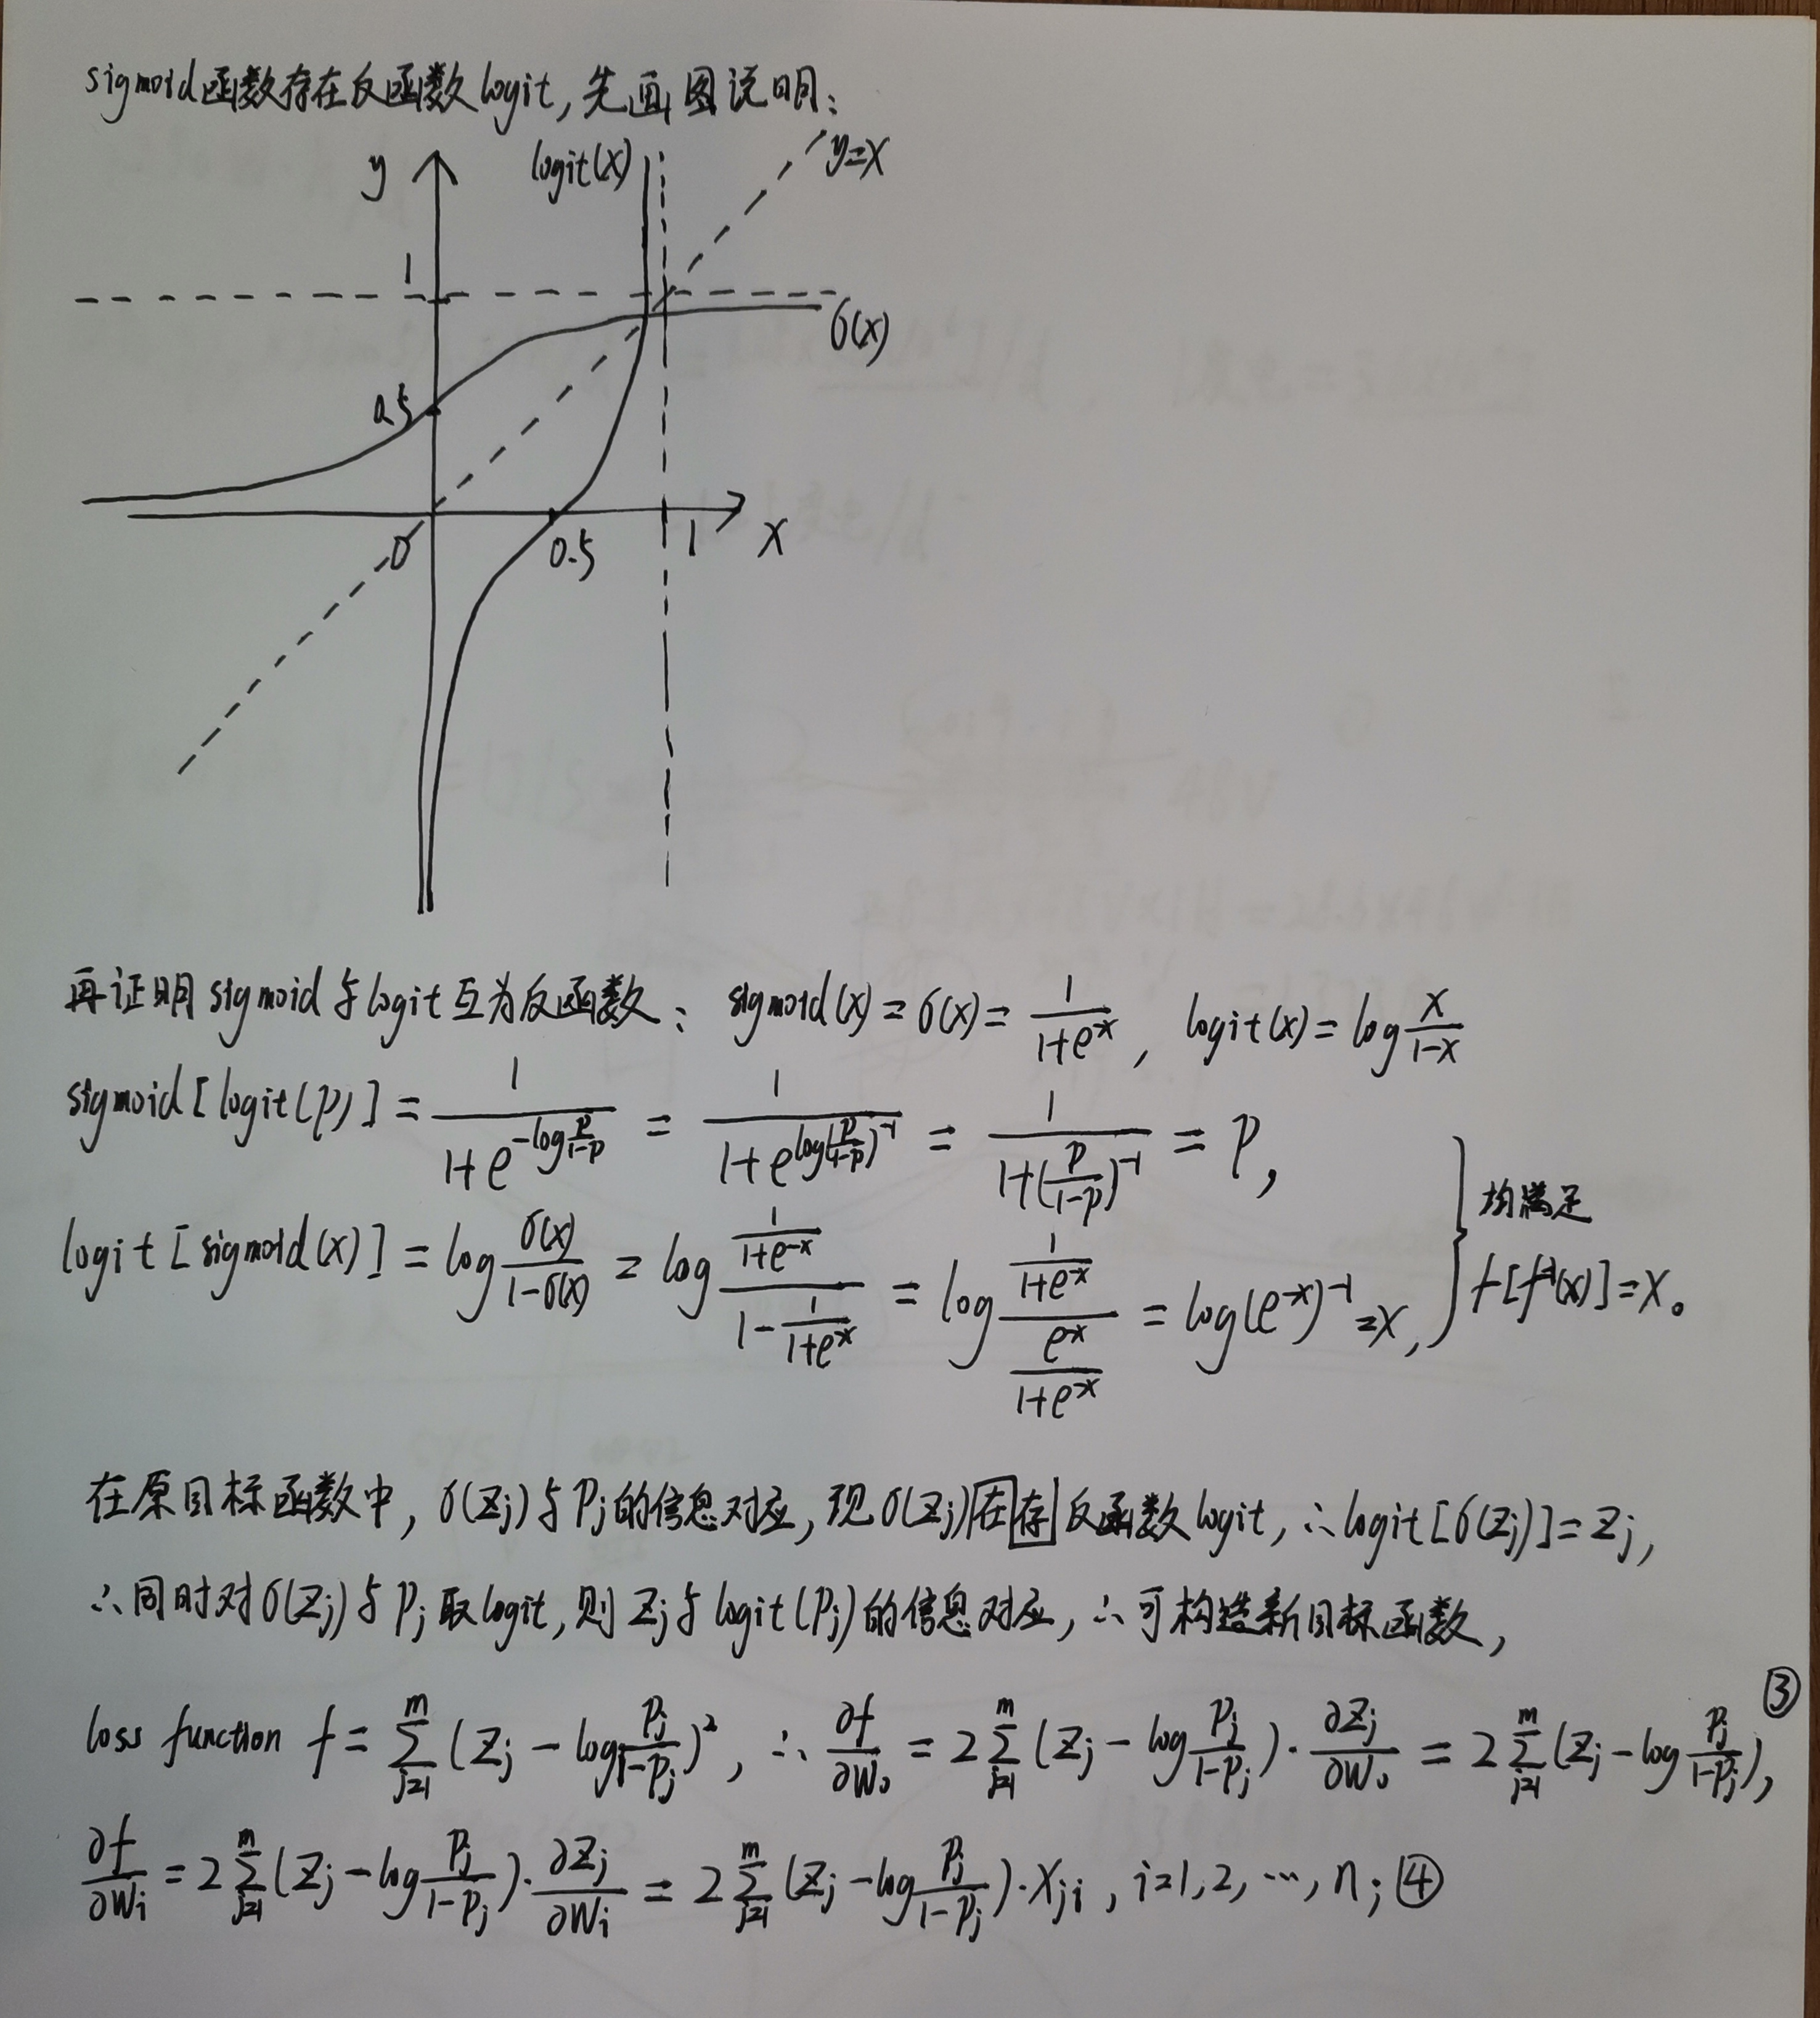 sigmoid函数存在反函数logit,先画图说明:
y
logit(x)
y=x
1
σ(x)
0.5
0
0.5
1
x
再证明sigmoid与logit互为反函数: sigmoid(x)=σ(x)=\frac{1}{1+e^{-x}}, logit(x)=log\frac{x}{1-x}
sigmoid[logit(p)]=\frac{1}{1+e^{-log\frac{p}{1-p}}}=\frac{1}{1+e^{log(\frac{p}{1-p})^{-1}}}=\frac{1}{1+(\frac{p}{1-p})^{-1}}=p,
logit[sigmoid(x)]=log\frac{σ(x)}{1-σ(x)}=log\frac{\frac{1}{1+e^{-x}}}{1-\frac{1}{1+e^{-x}}}=log\frac{\frac{1}{1+e^{-x}}}{\frac{e^{-x}}{1+e^{-x}}}=log(e^{-x})^{-1}=x,
均满足
f[f^{-1}(x)]=x。
在原目标函数中,σ(z_j)与p_j的信息对应,现σ(z_j)在存反函数logit,∴logit[σ(z_j)]=z_j,
∴同时对σ(z_j)与p_j取logit,则z_j与logit(p_j)的信息对应,∴可构造新目标函数,
loss function f=\sum_{j=1}^{m}(z_j-log\frac{p_j}{1-p_j})^2,∴\frac{∂f}{∂w_0}=2\sum_{j=1}^{m}(z_j-log\frac{p_j}{1-p_j})·\frac{∂z_j}{∂w_0}=2\sum_{j=1}^{m}(z_j-log\frac{p_j}{1-p_j}),③
\frac{∂f}{∂w_i}=2\sum_{j=1}^{m}(z_j-log\frac{p_j}{1-p_j})·\frac{∂z_j}{∂w_i}=2\sum_{j=1}^{m}(z_j-log\frac{p_j}{1-p_j})·x_{ji},i=1,2,…,n;④